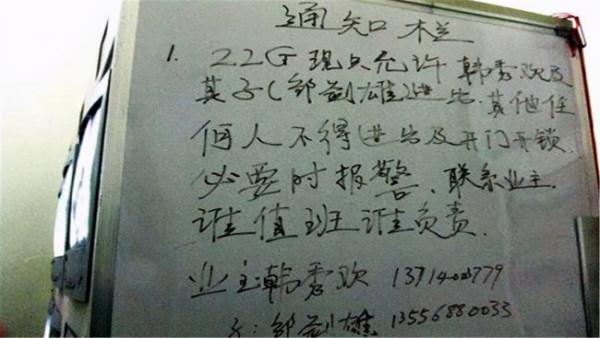 通知栏
1. 22G现只允许韩秀欢及
其子(邹剑雄)进出.其他任
何人不得进出及开门开锁
必要时报警、联系业主.
谁值班谁负责.
业主韩秀欢 13714003779
子:邹剑雄 13556880033